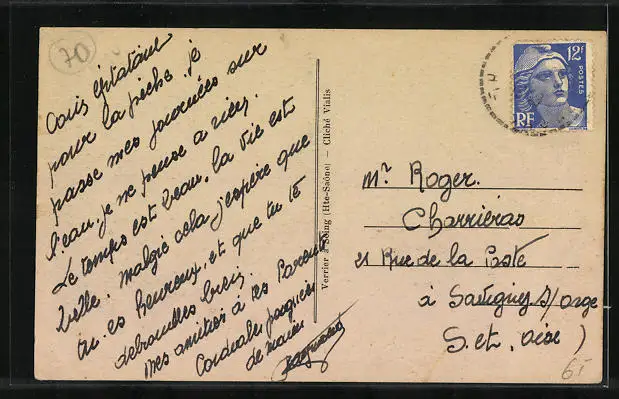 70
Coin épatant
pour la pêche je
passe mes journées sur
l'eau, je ne pense a rien.
Le temps est beau, la vie est
belle, malgré cela j'espère que
tu es heureux, et que tu te
debrouilles bien.
Mes amitiés à tes Parents
Cordiales poignées
de mains
Verrier à (Hte-Saône) — Cliché Vialis
12F
POSTES
RF
Mr Roger.
Charriéras
21 Rue de la Poste
à Savigny s/ Orge
S. et. Oise )